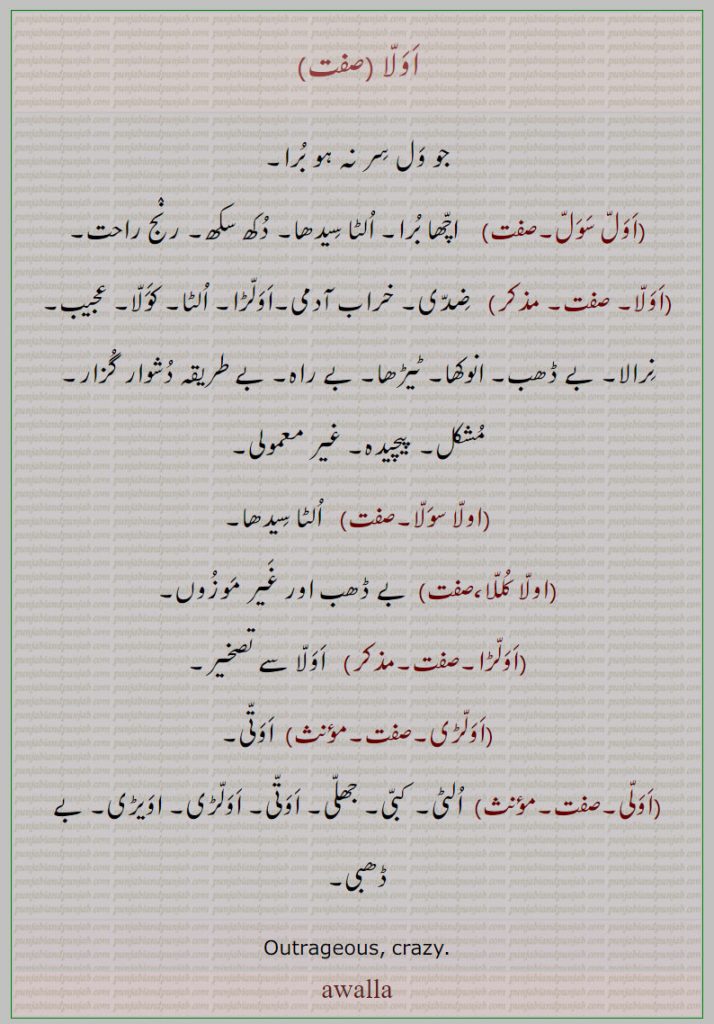 اَوَلّا (صفت)
جو وَل سِر نہ ہو بُرا۔
(اَوَلّ سَوَلّ۔صفت) اچھّا بُرا۔ اُلٹا سِیدھا۔ دُکھ سکھ۔ رنْج راحت۔
(اَوَلّا۔ صفت۔ مذکر) ضِدّی۔ خراب آدمی۔اَوَلّڑا۔ اُلٹا۔ کوَلّا۔ عجیب۔
نِرالا۔ بے ڈھب۔ انوکھا۔ ٹیڑھا۔ بے راہ۔ بے طریقہ دُشوار گُزار۔
مُشکل۔ پیچیدہ۔ غیر معمولی۔
(اولّا سوَلّا۔صفت) اُلٹا سِیدھا۔
(اولّا کُلّلا،صفت) بے ڈھب اور غَیر مَوزُوں۔
(اَوَلّڑا۔صفت۔مذکر) اَوَلّا سے تصخیر۔
(اَوَلّڑی۔صفت۔مؤنث) اَوَتّی۔
(اَوَلّی۔صفت۔مؤنث) اُلٹی۔ کبّی۔ جھلّی۔ اَوَتّی۔ اَوَلّڑی۔ اوَیڑی۔ بے
ڈھبی۔
Outrageous, crazy.
awalla